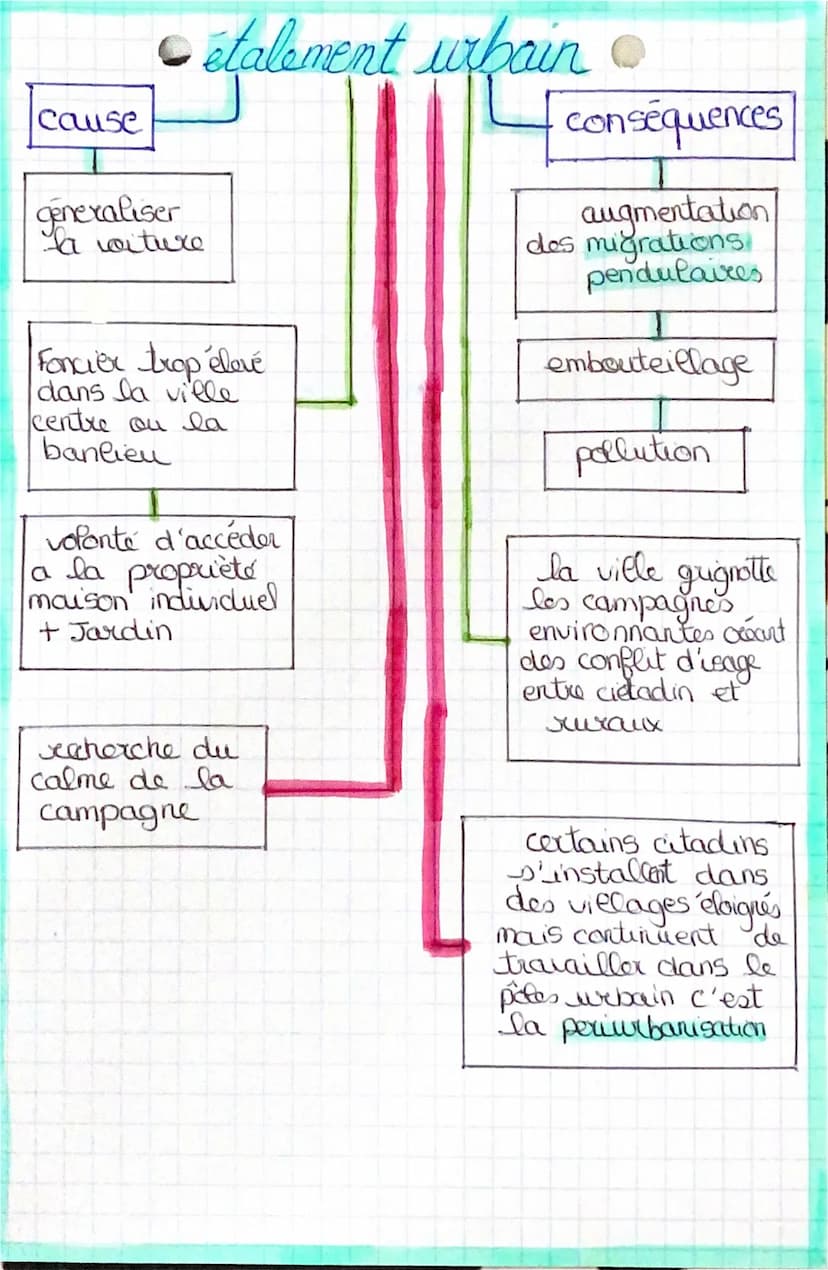 étalement urbain
cause
géneraliser
la voiture
Foncier trop élevé
dans la ville
centre ou la
banlieu
volonté d'accéder
a la proprièté
maison individuel
+ Jardin
recherche du
calme de la
campagne
conséquences
augmentation
des migrations
pendulaires
embouteillage
pollution
la ville grignotte
les campagnes
environnantes créant
des conflit d'usage
entre citadin et
ruraux
certains citadins
s'installent dans
des villages éloignés
mais continuent de
travailler dans le
pôles urbain c'est
la periurbanisation